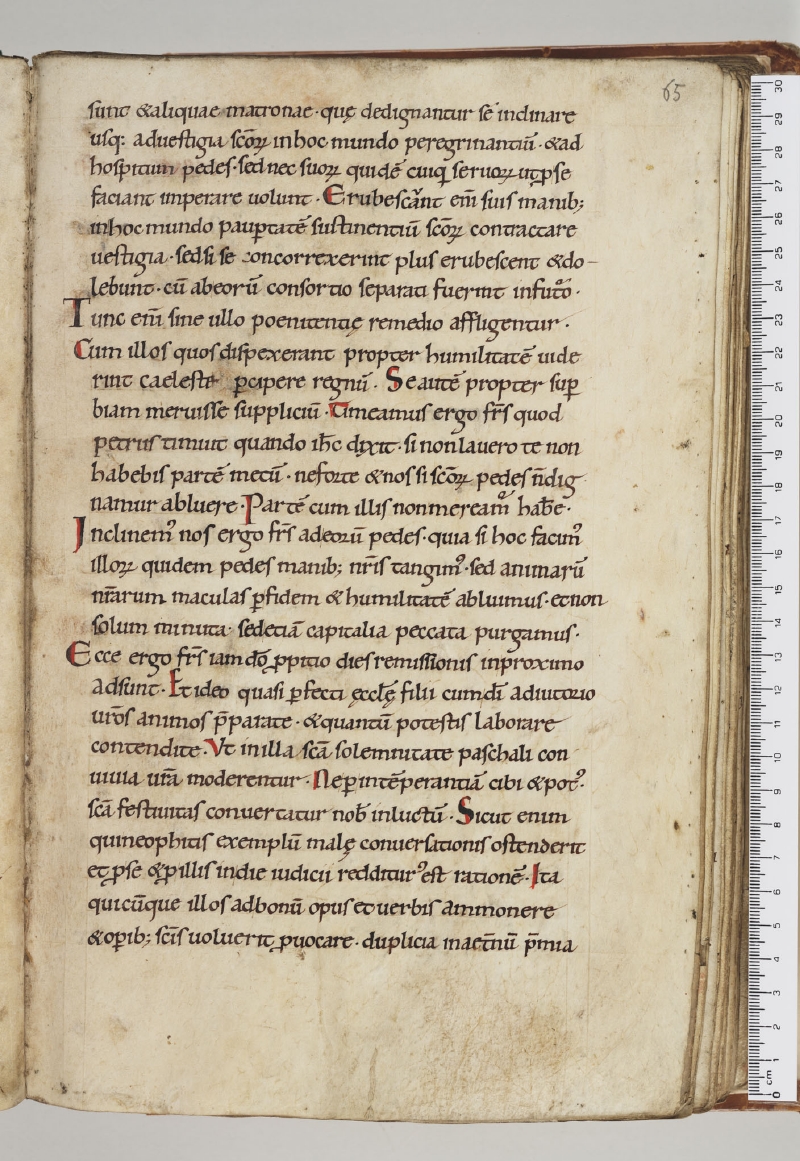 65
sunt &aliquae matronae · quę dedignantur se inclinare
usq: aduestigia scōꝝ inhoc mundo peregrinantiū · &ad
hospitum pedes · sed nec suoꝝ quidē cuiq seruoꝝ ut ꝑse
faciant imperare uolunt · Erubescant em̄ suis manib;
inhoc mundo pauꝑtatē sustinentiū scōꝝ contractare
uestigia · sedsi se concorrexerint plus erubescent &do–
lebunt · cū abeorū consortio separati fuerint infutō ·
Tunc em̄ sine ullo poenitentię remedio affligentur ·
Cum illos quos dispexerant propter humilitatē uide
rint caeleste ꝑcipere regnū · Se autē propter suꝑ
biam meruisse suppliciū · Timeamus ergo fr̄s quod
petrus timuit quando ih̄c dixit · si nonlauero te non
habebis partē mecū · neforte &nos si scōꝝ pedes n̄dig
namur abluere · Partē cum illis nonmereamꝰ hab̄e ·
Inclinemꝰ nos ergo fr̄s adeorū pedes · quia si hoc facimꝰ
illoꝝ quidem pedes manib; nr̄is tangimꝰ · sed animarū
nr̄arum maculas ꝑfidem & humilitatē abluimus · etnon
solum minuta · sedetiā capitalia peccata purgamus ·
Ecce ergo fr̄s iam dō ꝓpitio dies remissionis inproximo
adsunt · Et ideo quasi ꝑfecti ęcclę filii cumdī adiutorio
ur̄os animos p̄parate · &quantū potestis laborare
contendite · Vt in illa scā solemnitate paschali con
uiuia ur̄a moderentur · Neꝑ intēperantiā cibi &potꝰ ·
scā festiuitas conuertatur nob̄ inluctū · Sicut enim
quineophitis exemplū malę conuersationis ostenderit
et ꝓse &ꝓillis indie iudicii redditurꝰ est rationē · Ita
quicūque illos adbonū opus et uerbis ammonere
&oꝑib; scīs uoluerit ꝓuocare · duplicia inaet̄nū p̄mia